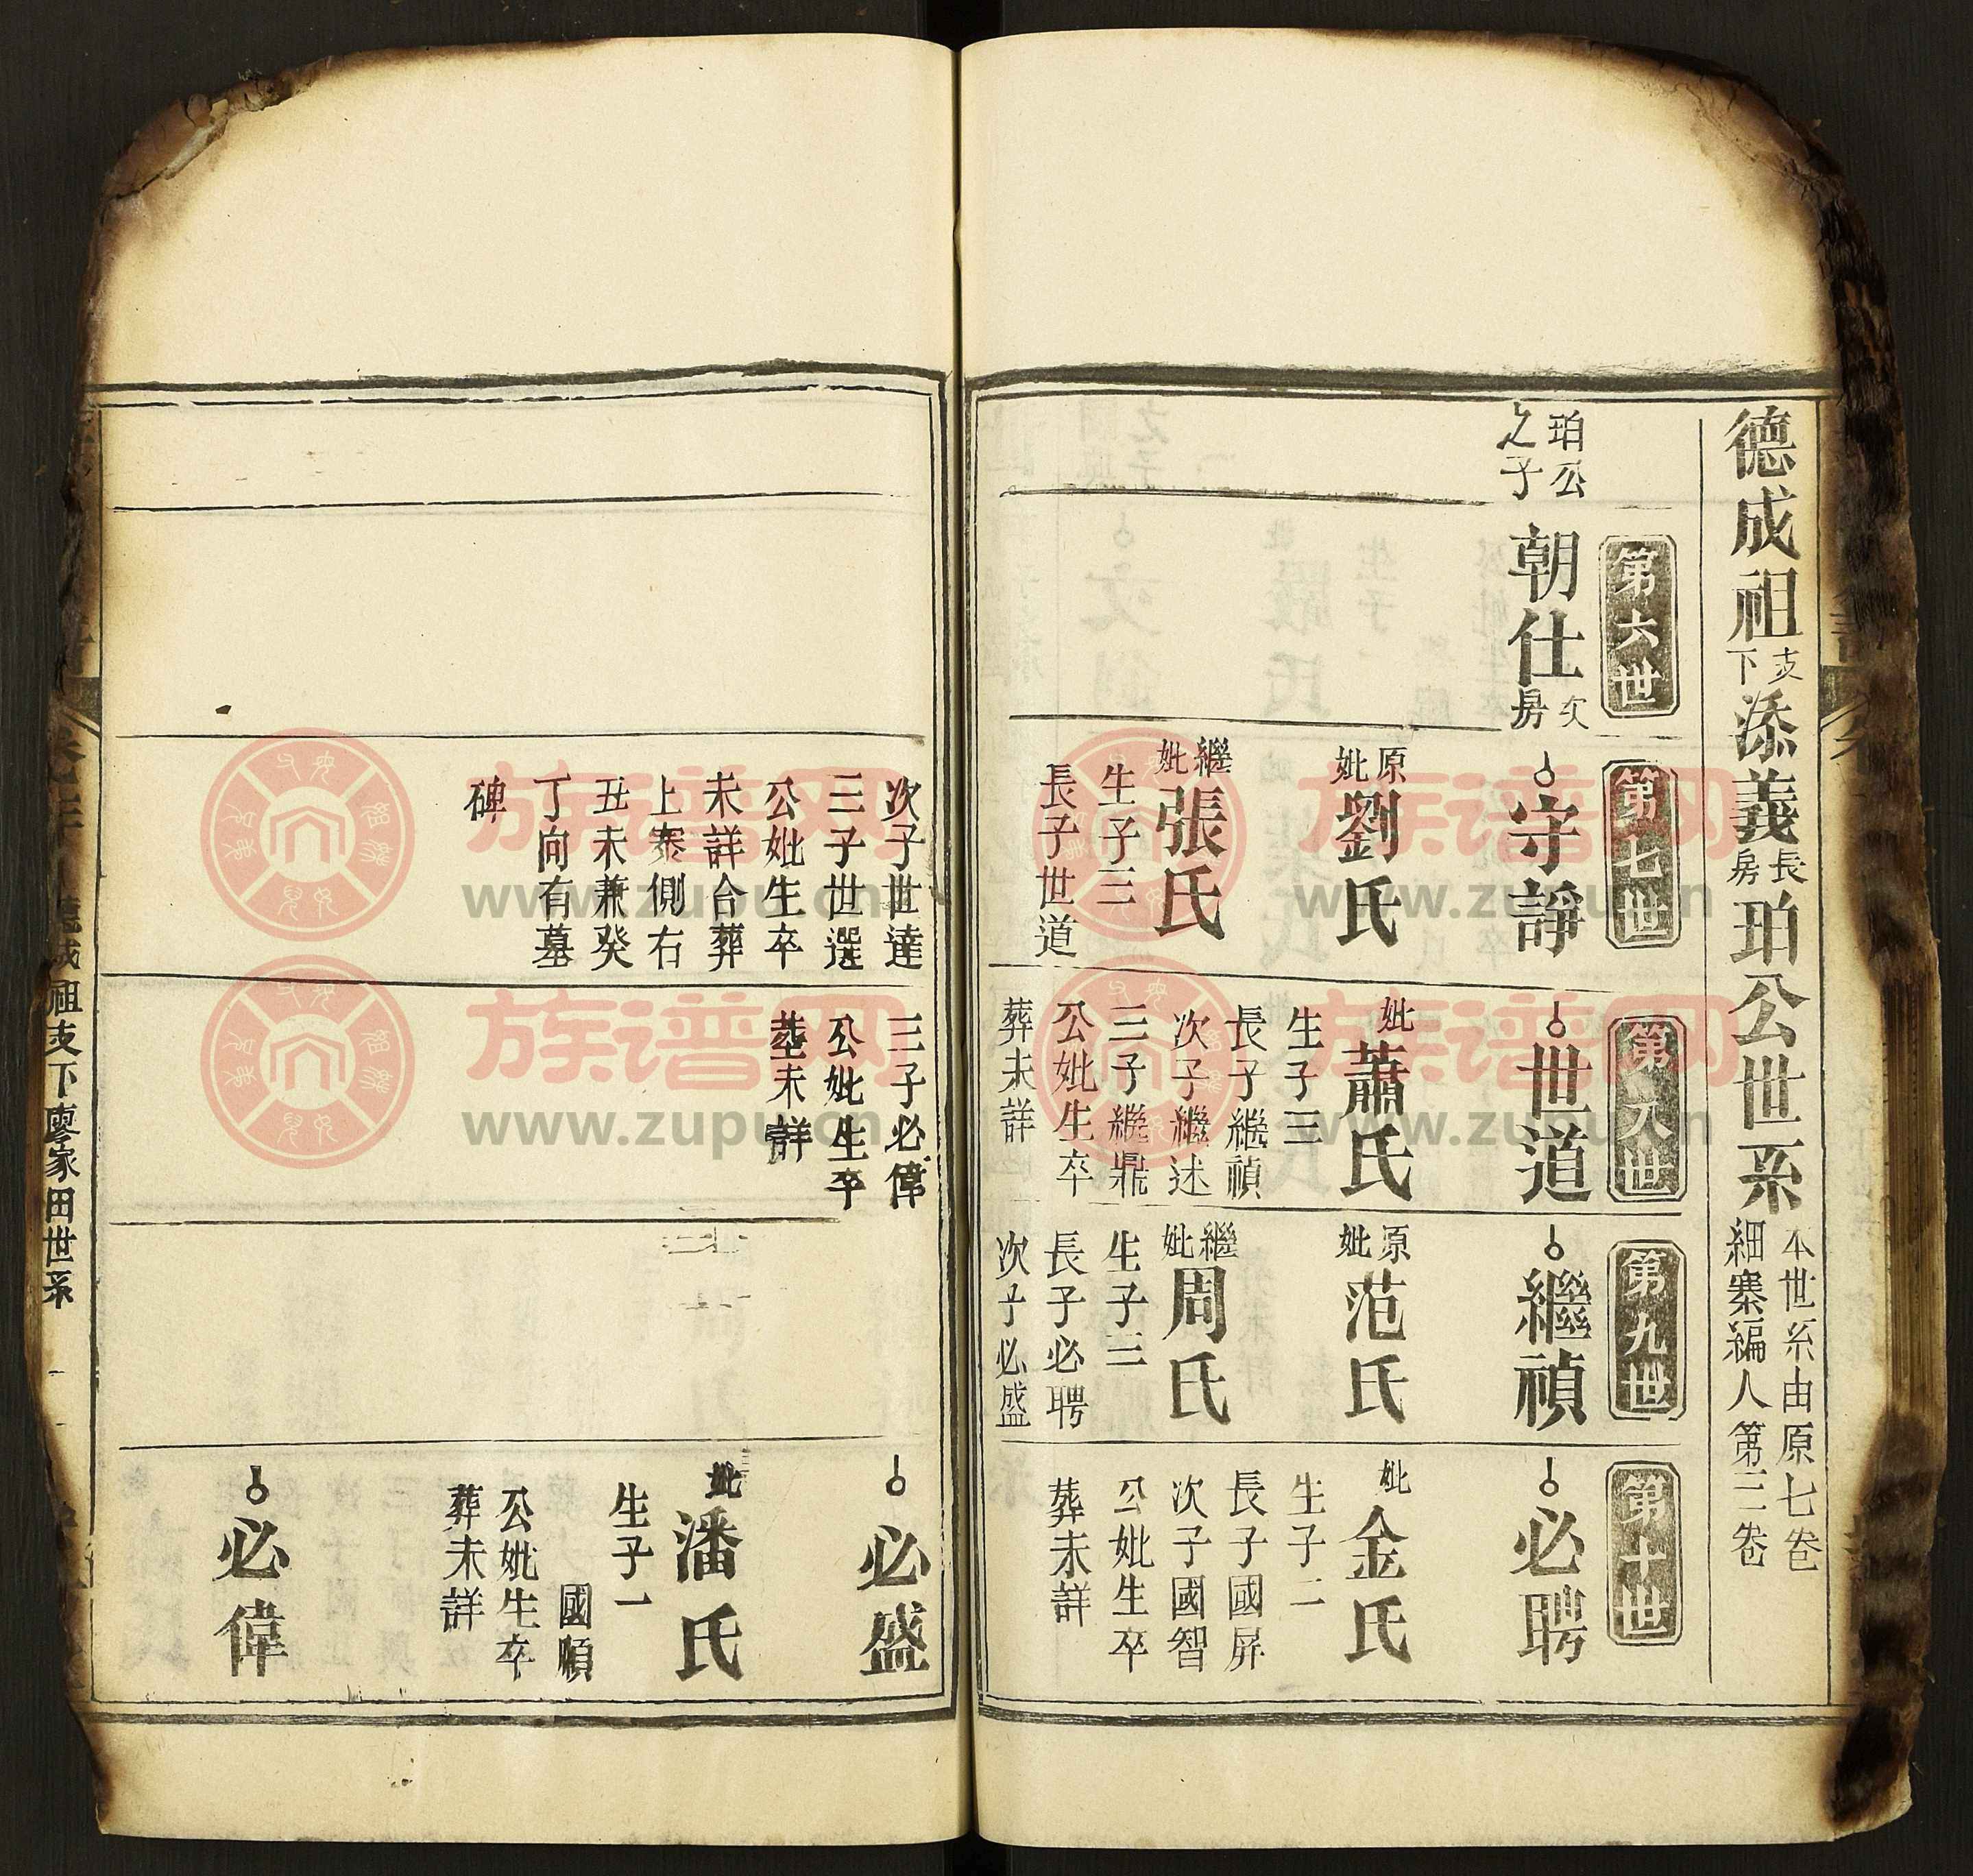 德成祖支下添義長房珀公世系本世系由原七卷
細寨編人第三卷
第六世
珀公
之子
朝仕欠房
第七世
守諍
原妣劉氏
繼妣張氏
生子三
長子世道
次子世達
三子世選
公妣生卒
未詳合葬
上寨側右
丑未兼癸
丁向有墓
碑
第八世
世道
妣蕭氏
生子三
長子繼禎
次子繼述
三子繼鼎
公妣生卒
葬未詳
第九世
繼禎
原妣范氏
繼妣周氏
生子三
長子必聘
次子必盛
三子必偉
公妣生卒
塟未詳
第十世
必聘
妣金氏
生子二
長子國屛
次子國智
公妣生卒
葬未詳
必盛
妣潘氏
生子一
國順
公妣生卒
葬未詳
必偉
德成祖支下廖家田世系
族谱网
www.zupu.cn
族谱网
www.zupu.cn
族谱网
www.zupu.cn
族谱网
www.zupu.cn